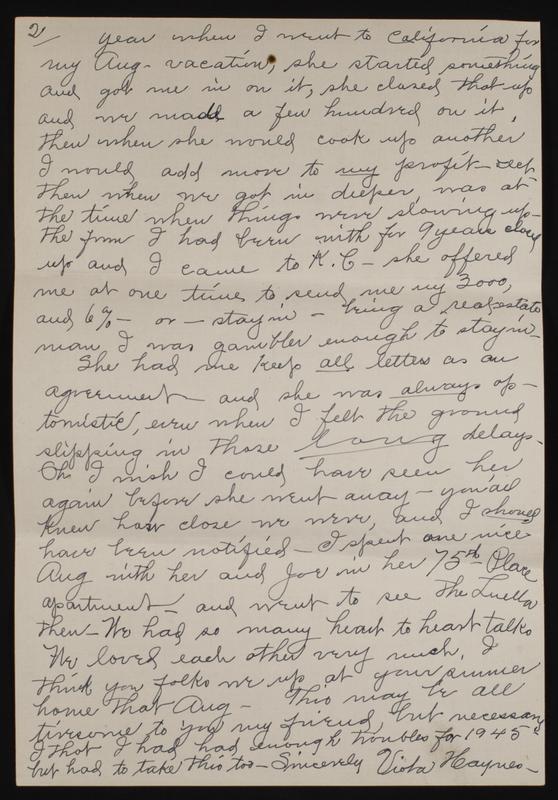 2/ year when I went to California for
my Aug- vacation, she started something
and got me in on it, she closed that up
and we made a few hundred on it,
then when she would cook up another
I would add more to my profit-
then when we got in deeper was at
the time when things were slowing up-
the firm I had been with for 9 years closed
up and I came to K.C- she offered
me at one time to send me my 3000,
and 6%- or - stay in - being a real estate
man I was gambler enough to stay in-
She had me keep all letters as an
agreement- and she was always op-
tomistic, even when I felt the ground
slipping in those long delays-
Oh I wish I could have seen her
again before she went away- you'ad
knew how close we were, and I should
have been notified- I spent one nice
Aug with her and Joe in her 75th Place
apartment- and went to see The Luella
then- We had so many heart to heart talks
We loved each other very much. I
think you folks we up at your summer
home that Aug- This may be all
tiresome to you my friend, but necessary
I thot I had had enough troubles for 1945
but had to take this too- Sincerely Viola Haynes-